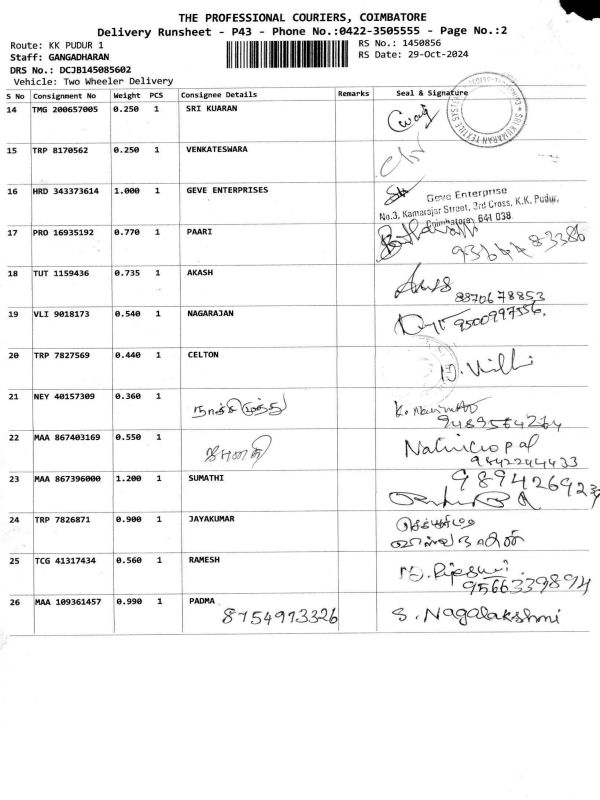 THE PROFESSIONAL COURIERS, COIMBATORE
Delivery Runsheet - P43 - Phone No.:0422-3505555 - Page No.:2
Route: KK PUDUR 1 RS No.: 1450856
Staff: GANGADHARAN RS Date: 29-Oct-2024
DRS No.: DCJB145085602
Vehicle: Two Wheeler Delivery
S No Consignment No Weight PCS Consignee Details Remarks Seal & Signature
14 TMG 200657005 0.250 1 SRI KUARAN
SRI KUMARAN TEXTILE SYSTEMS
15 TRP 8170562 0.250 1 VENKATESWARA
16 HRD 343373614 1.000 1 GEVE ENTERPRISES
Geve Enterprise
No.3, Kamarajar Street, 3rd Cross, K.K. Pudur,
Coimbatore 641 038.
17 PRO 16935192 0.770 1 PAARI
18 TUT 1159436 0.735 1 AKASH
8870678853
19 VLI 9018173 0.540 1 NAGARAJAN
9500997556.
20 TRP 7827569 0.440 1 CELTON
21 NEY 40157309 0.360 1
9489564264
22 MAA 867403169 0.550 1
9842244433
23 MAA 867396000 1.200 1 SUMATHI
24 TRP 7826871 0.900 1 JAYAKUMAR
25 TCG 41317434 0.560 1 RAMESH
9566339894
26 MAA 109361457 0.990 1 PADMA
8754973326 S. Nagalakshmi